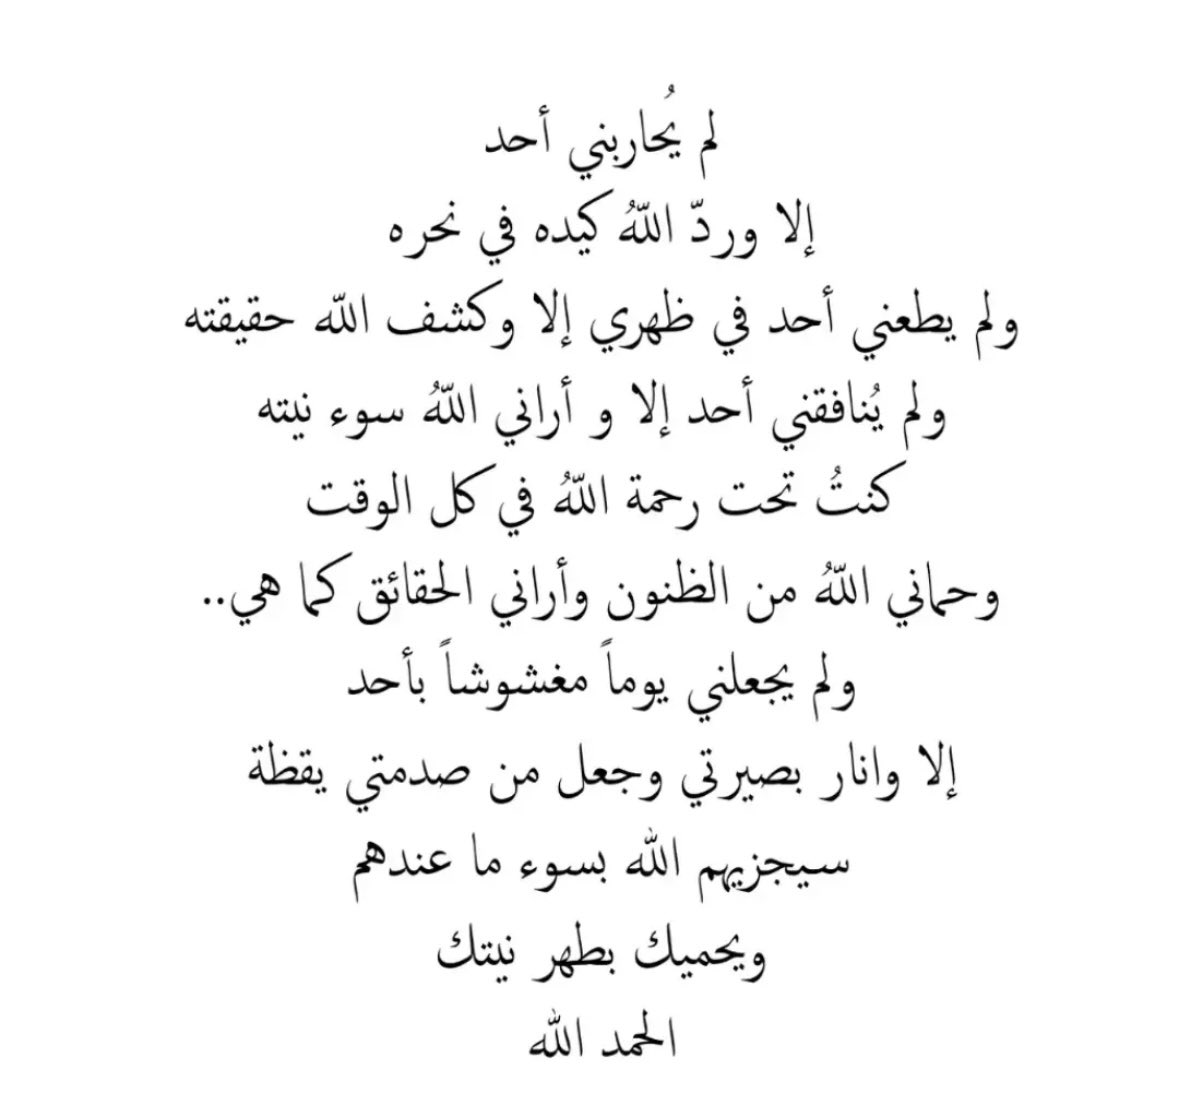 لم يُحاربني أحد
إلا وردّ اللّهُ كيده في نحره
ولم يطعني أحد في ظهري إلا وكشف اللّه حقيقته
ولم يُنافقني أحد إلا و أراني اللّهُ سوء نيته
كنتُ تحت رحمة اللّهُ في كل الوقت
وحماني اللّهُ من الظنون وأراني الحقائق كما هي..
ولم يجعلني يوماً مغشوشاً بأحد
إلا وانار بصيرتي وجعل من صدمتي يقظة
سيجزيهم الله بسوء ما عندهم
ويحميك بطهر نيتك
الحمد الله